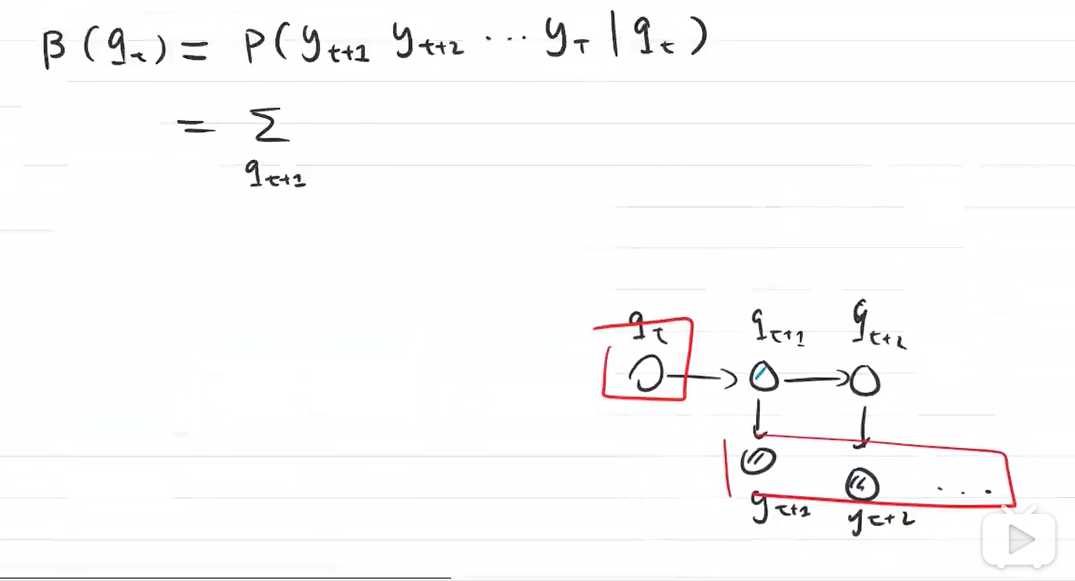 β(q_t) = P(y_{t+1} y_{t+2} ... y_T | q_t)
= Σ
q_{t+1}
q_t q_{t+1} q_{t+2}
...
y_{t+1} y_{t+2}